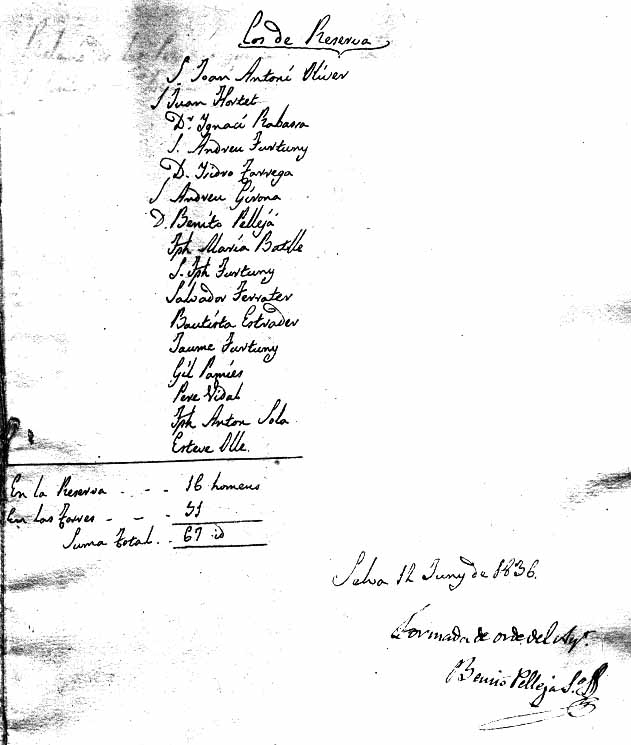 Los de Reserva
S. Joan Antoni Oliver
S Juan Hortet
Dr. Ignaci Rabassa
S. Andreu Furtuny
D. Isidro Farrega
S Andreu Girona
D. Benito Pellejá
Jph Maria Batlle
S. Jph Furtuny
Salvador Ferrater
Bautista Estrader
Jaume Furtuny
Gil Pamies
Pere Vidal
Jph Anton Sola
Esteve Olle.
En la Reserva - - - 16 homens
En las Torres - - - 51
Suma Total. . 67 id
Selva 12 Juny de 1836.
Formada de orde del
Benito Pellejá